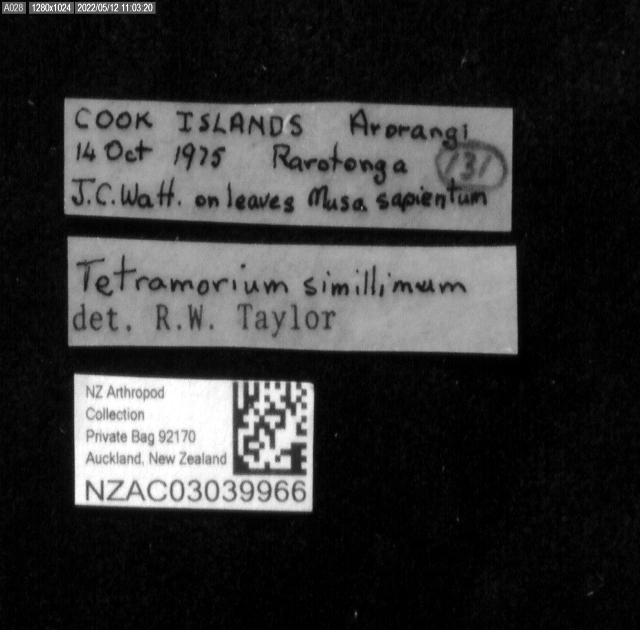 A028 1280x1024 2022/05/12 11:03:20
COOK ISLANDS Arorangi
14 Oct 1975 Rarotonga 131
J.C. Watt. on leaves Musa sapientum
Tetramorium simillimum
det. R.W. Taylor
NZ Arthropod
Collection
Private Bag 92170
Auckland, New Zealand
NZAC03039966